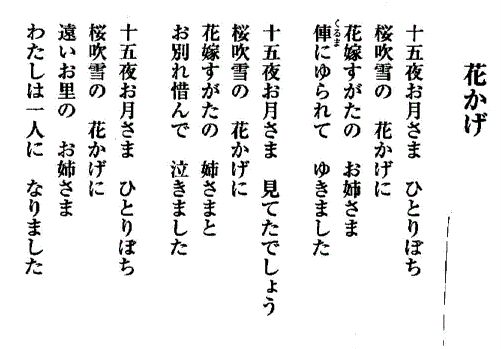 花かげ
十五夜お月さま ひとりぼち
桜吹雪の 花かげに
花嫁すがたの お姉さま
俥にゆられて ゆきました
くるま
十五夜お月さま 見てたでしょう
桜吹雪の 花かげに
花嫁すがたの 姉さまと
お別れ惜んで 泣きました
十五夜お月さま ひとりぼち
桜吹雪の 花かげに
遠いお里の お姉さま
わたしは一人に なりました